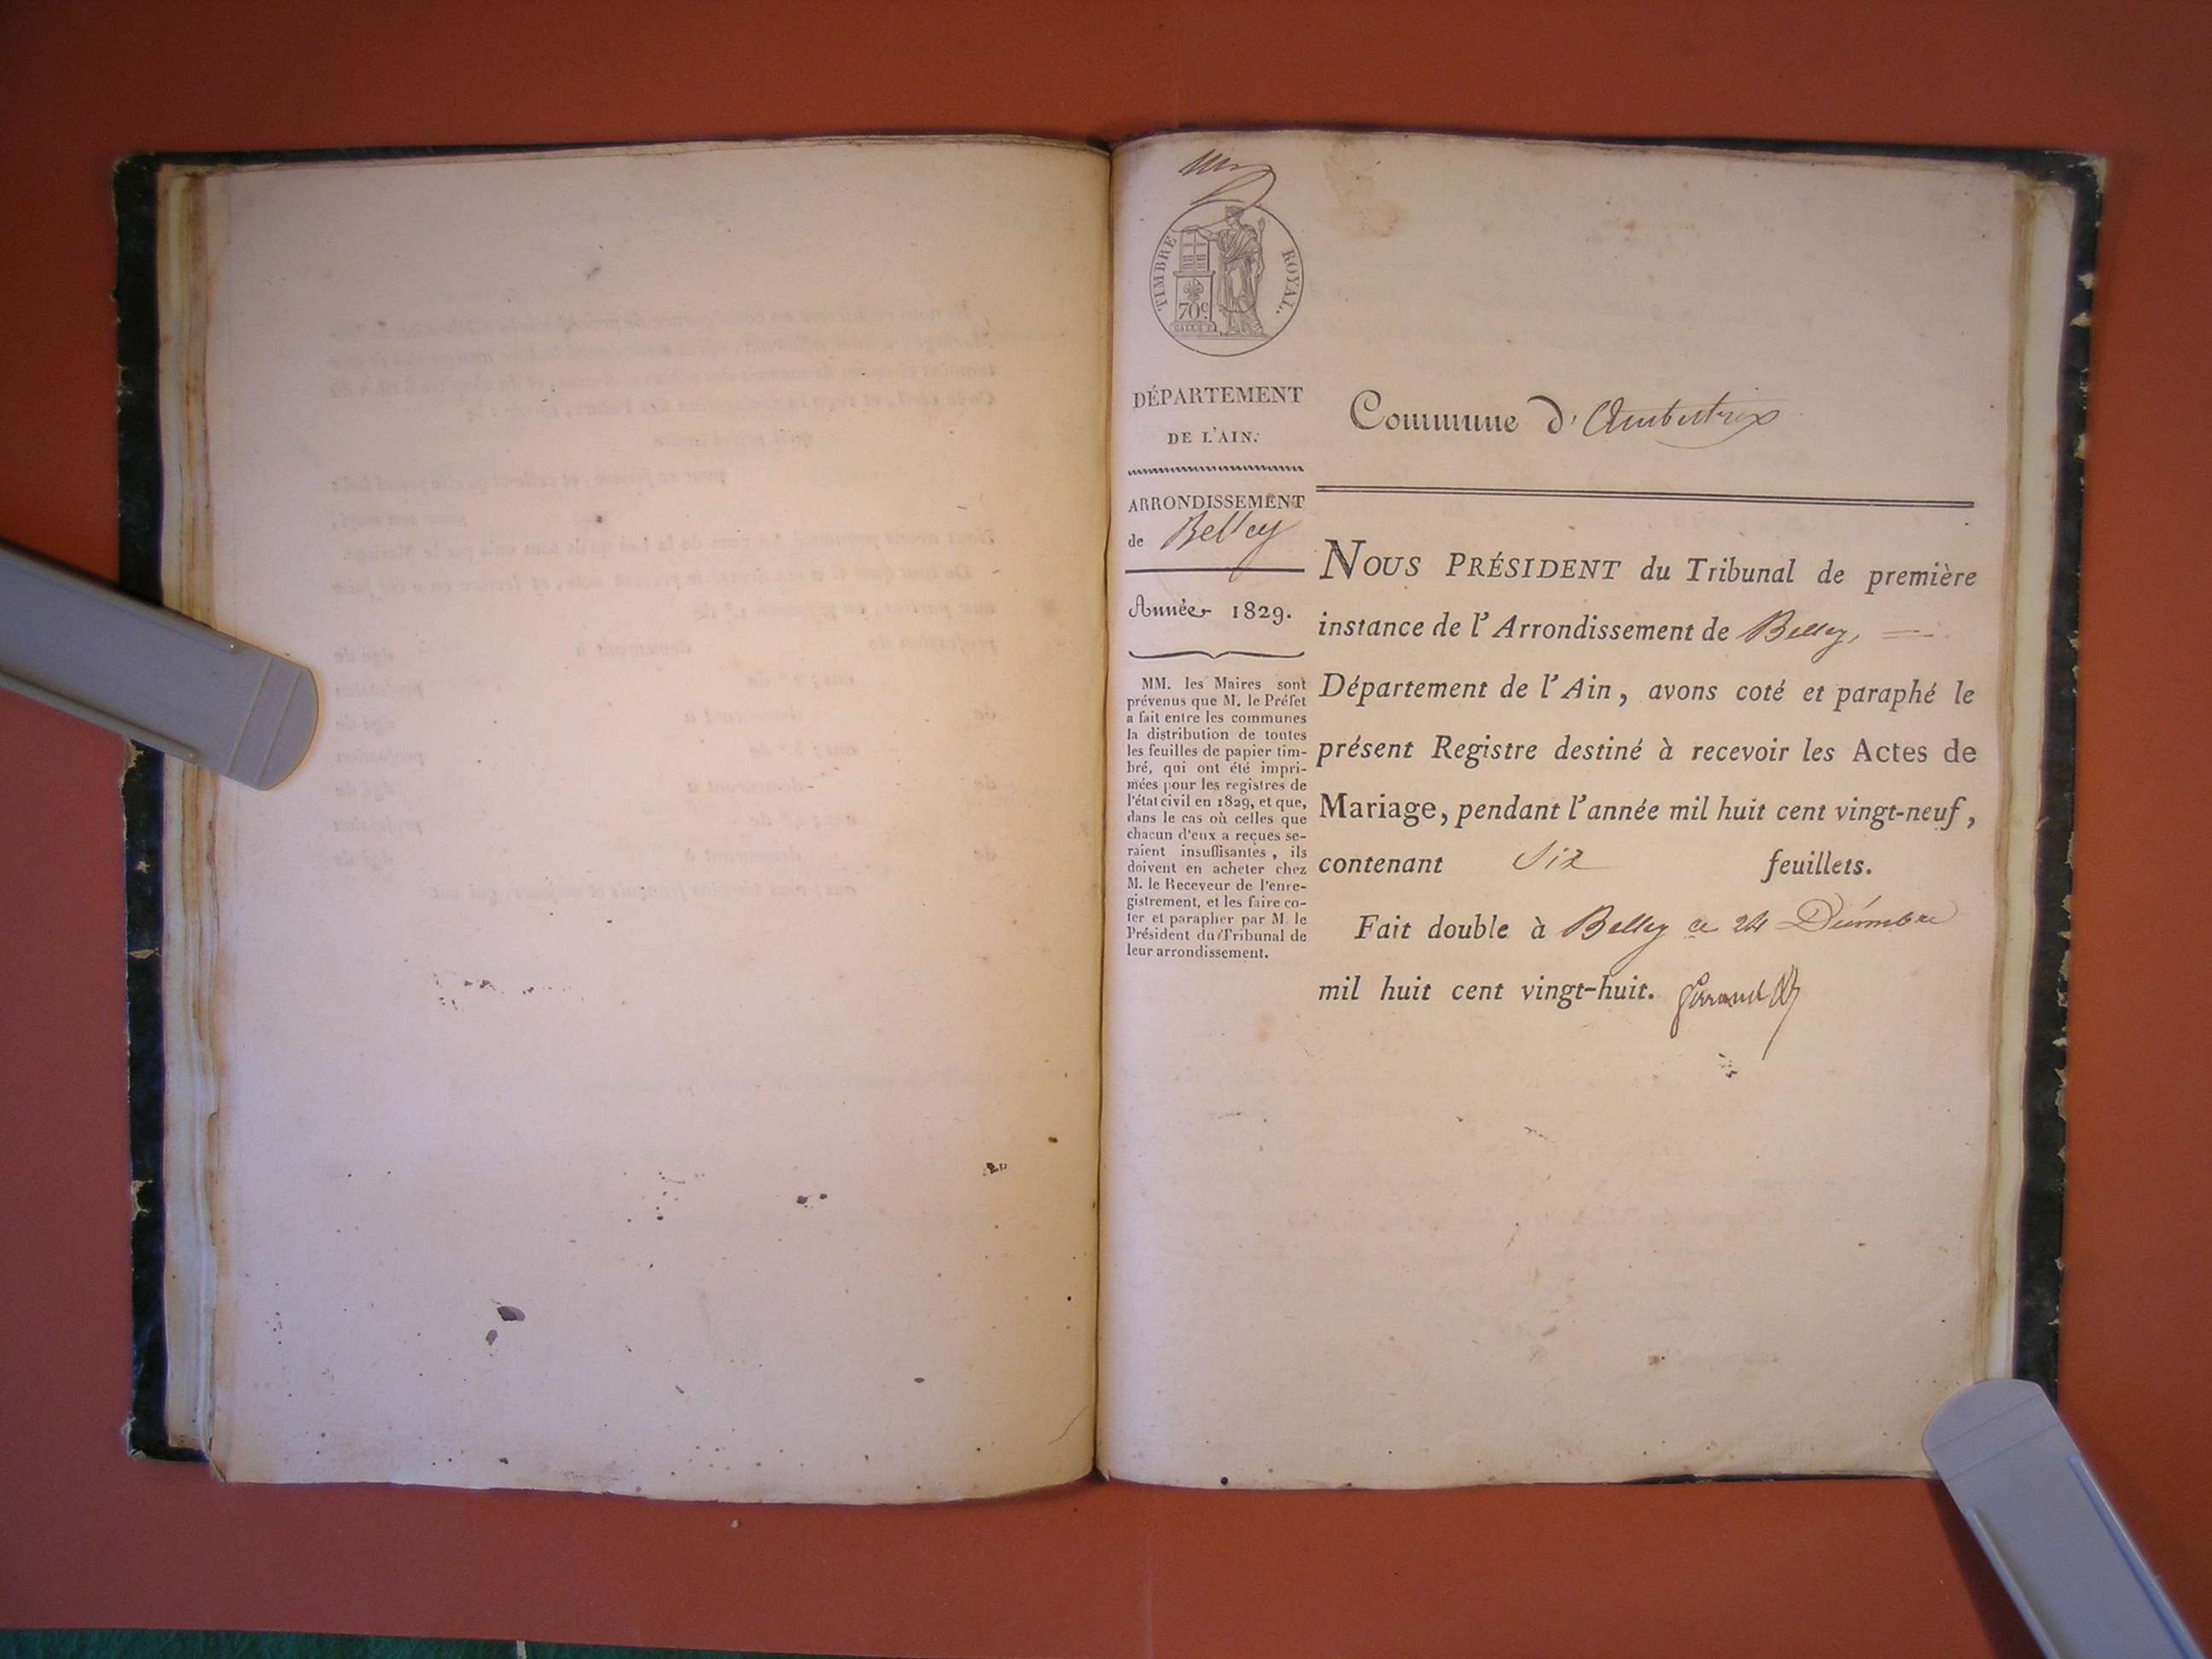 TIMBRE ROYAL.
70c
DÉPARTEMENT
DE L'AIN.
ARRONDISSEMENT
de Belley
Année 1829.
MM. les Maires sont
prévenus que M. le Préfet
a fait entre les communes
la distribution de toutes
les feuilles de papier tim-
bré, qui ont été impri-
mées pour les registres de
l'état civil en 1829, et que,
dans le cas où celles que
chacun d'eux a reçues se-
raient insuffisantes, ils
doivent en acheter chez
M. le Receveur de l'enre-
gistrement, et les faire co-
ter et parapher par M. le
Président du Tribunal de
leur arrondissement.
Commune d'Ambutrix
NOUS PRÉSIDENT du Tribunal de première
instance de l'Arrondissement de Belley,
Département de l'Ain, avons coté et paraphé le
présent Registre destiné à recevoir les Actes de
Mariage, pendant l'année mil huit cent vingt-neuf,
contenant Six feuillets.
Fait double à Belley ce 24 Décembre
mil huit cent vingt-huit.